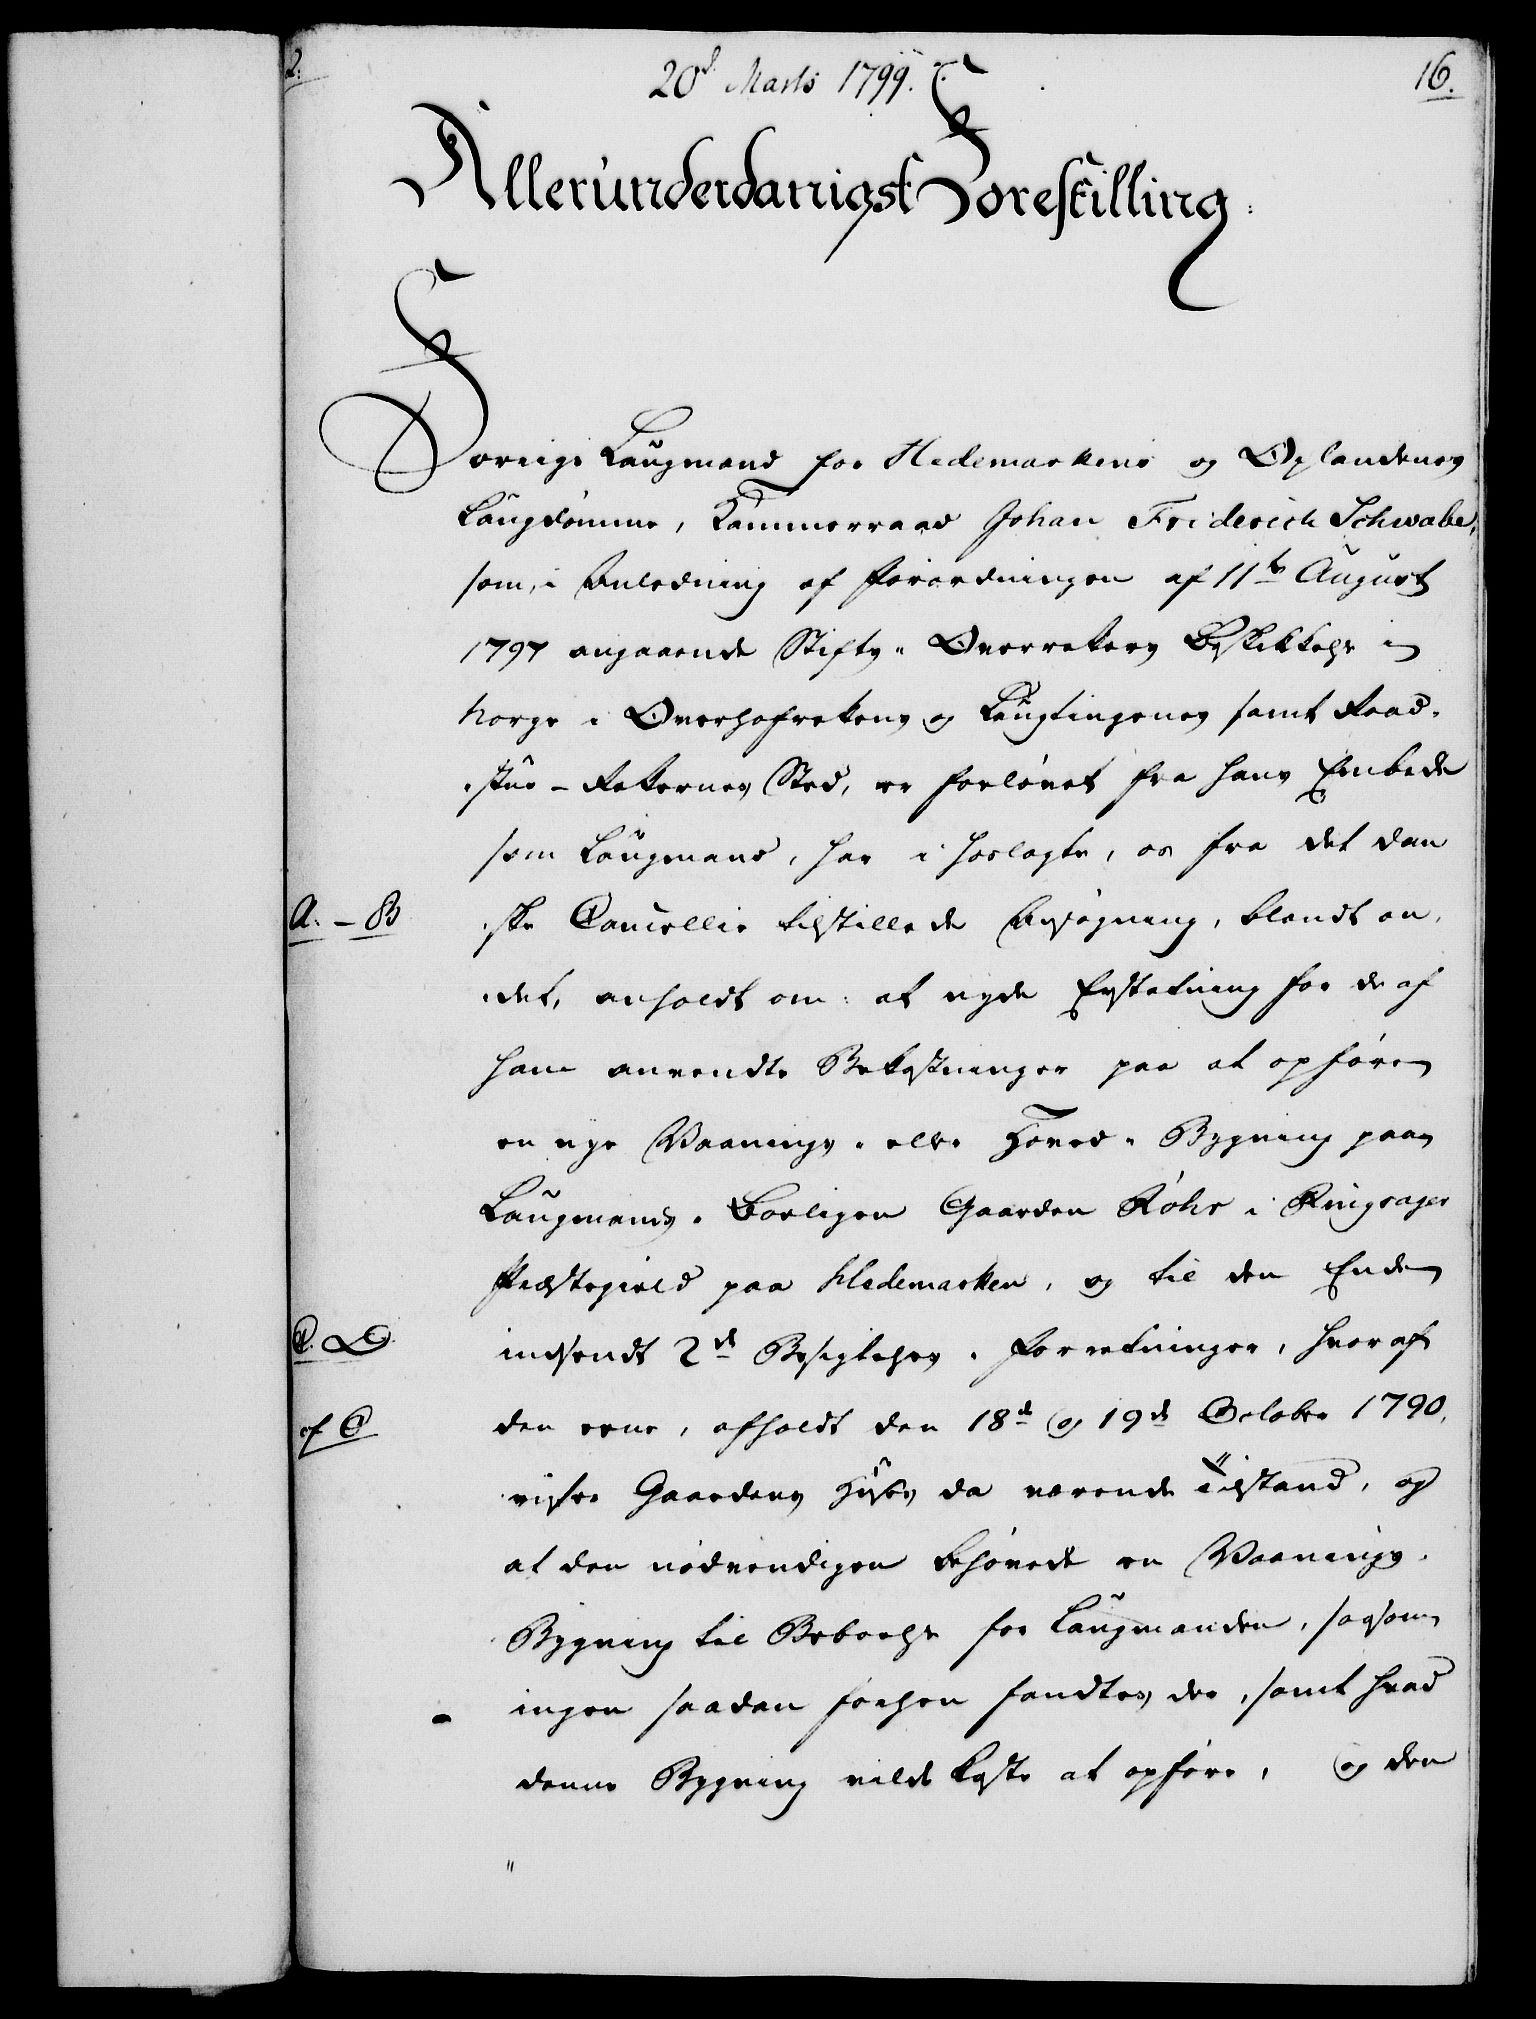 2.
20d Marts 1799.
16.
Allerunderdanigst Forestilling:
Forrige Laugmand for Hedemarkens og Oplandenes
Laugdømme, Kammerraad Johan Friderich Schwabe,
som, i Anledning af Forordningen af 11te August
1797 angaaende Stifts-Overretters Beskikkelse i
Norge i Overhofrettens og Laugtingenes samt Raad-
stue-Retternes Sted, er forløvet fra hans Embede
som Laugmand, har i hoslagte, os fra det dan
A. - B
ske Cancellie tilstillede Ansøgning, blandt an
det, anholdt om: at nyde Erstatning for de af
ham anvendte Bekostninger paa at opføre
en nye Vaanings- eller Hoved-Bygning paa
Laugmands-Boeligen Gaarden Röhr i Ringsager
Præstegield paa Hedemarken, og til den Ende
C. D
indsendt 2de Besigtelses-Forretninger, hvoraf
cf C
den eene, afholdt den 18de og 19de October 1790,
viser Gaardens Huses da værende Tilstand, og
at den nødvendigen behøvede en Vaanings-
Bygning til Beboelse for Laugmanden, saasom
ingen saadan forhen fandtes der, samt hvad
denne Bygning vilde koste at opføre, og den